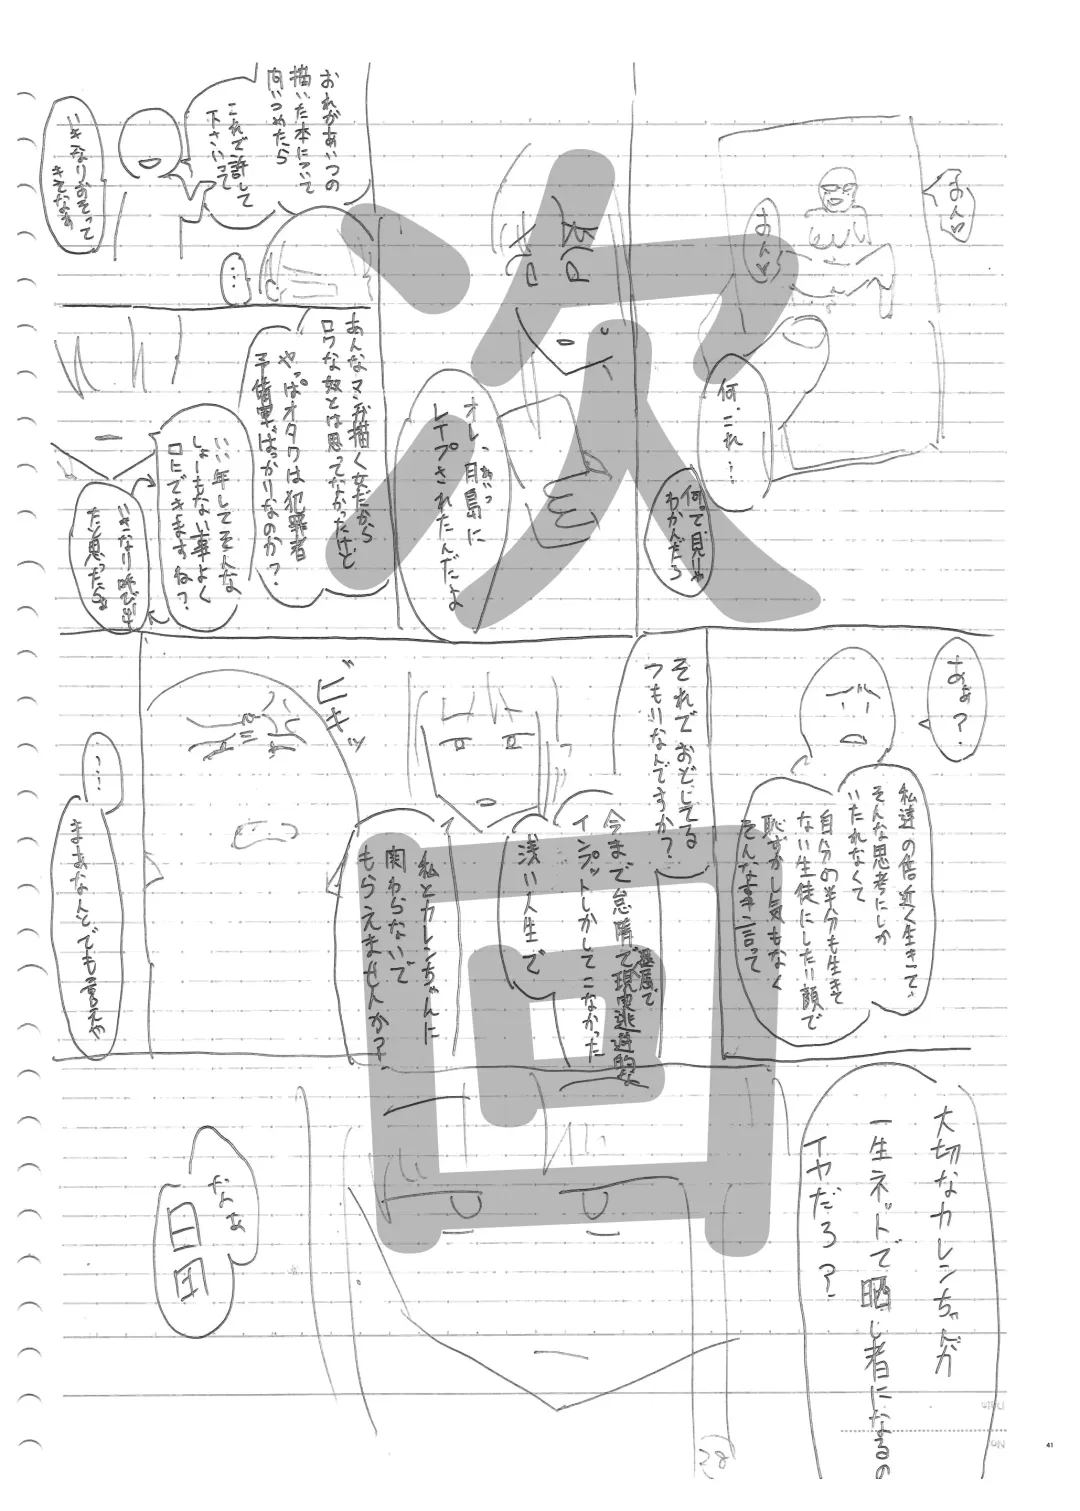 あん♡
あん♡
何、これ…
何って見りゃ
わかんだろ
オレ、月島に
あいつ
レイプされたんだよ
おれがあいつの
描いた本について
問いつめたら
これで許して
下さいって
いきなりおそって
きてなぁ
…
あんなマンガ描く女だから
ロクな奴とは思ってなかったけど
やっぱオタクは犯罪者
予備軍ばっかりなのか?
いい年してそんな
しょーもない事よく
口にできますね?
いきなり呼び出
たと思ったら
あぁ?
私達の倍近く生きてて
そんな思考にしか
いたれなくて
自分の半分も生きて
ない生徒にしたい顔で
恥ずかし気もなく
そんな事言って
それでおどしてる
つもりなんですか?
今まで怠惰で現実逃避的な
インプットしかしてこなかった
浅い人生で
私とカレンちゃんに
関わらないで
もらえませんか?
ビキッ
…
まあなんとでも言えや
大切なカレンちゃんが
一生ネットで晒し者になるの
イヤだろ?
なぁ
次回
38
41